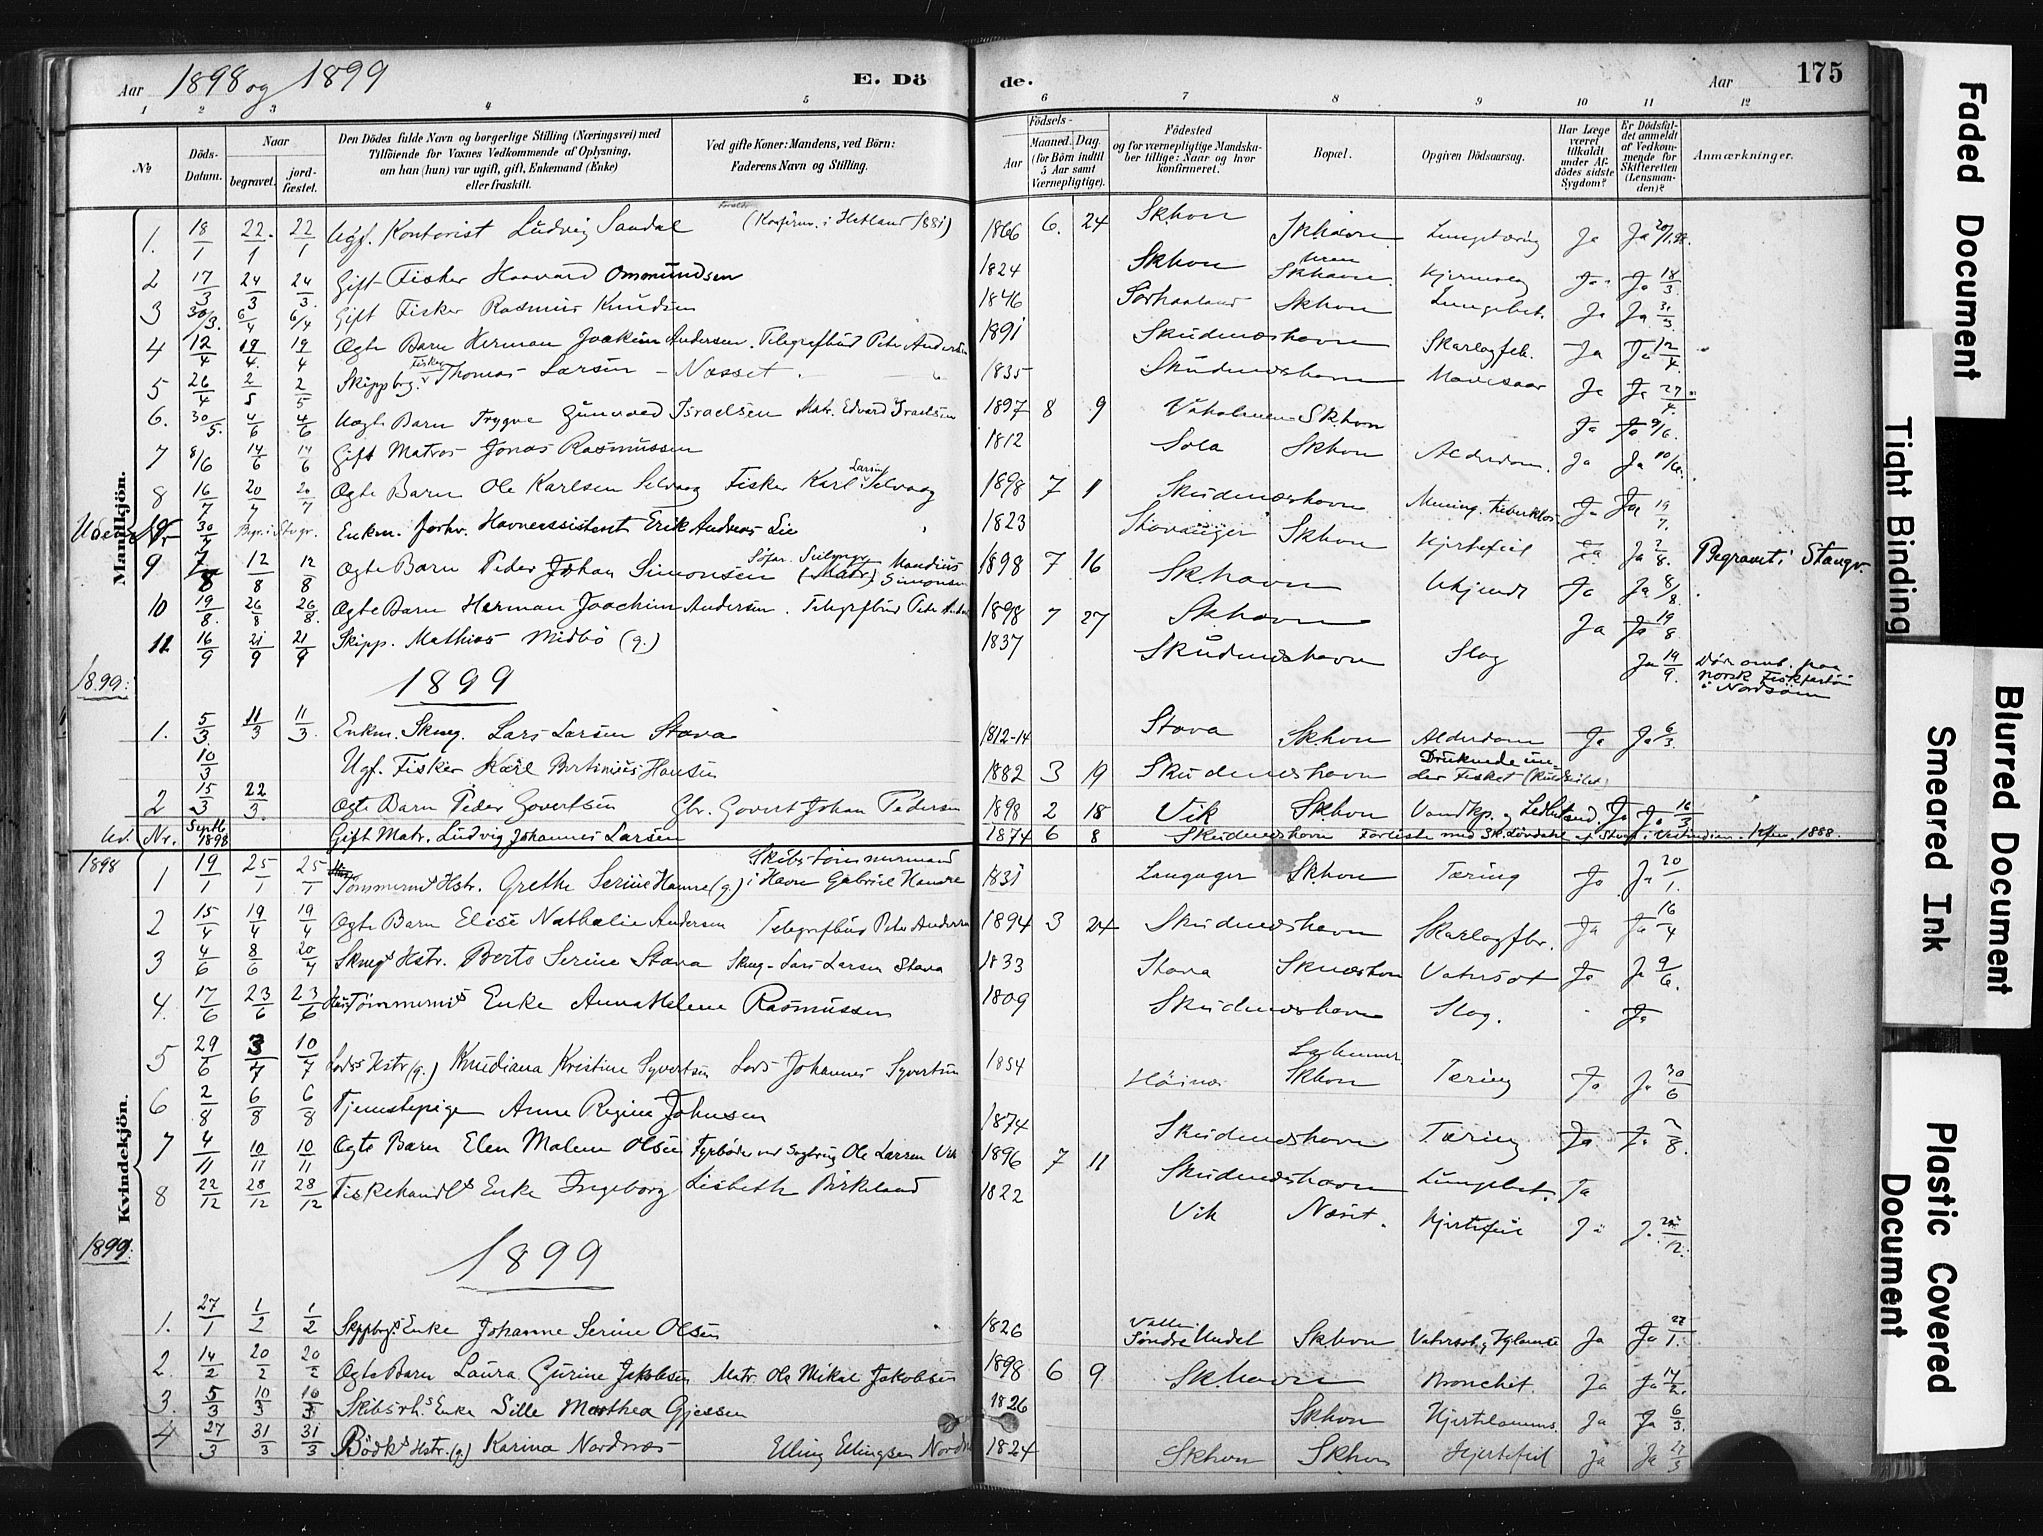 Aar 1898 og 1899 E. Dö de. Aar 175
1 2 3 4 5 6 7 8 9 10 11 12
No
Döds-Datum.
Naar
begravet.
jord-fæstet.
Den Dödes fulde Navn og borgerlige Stilling (Næringsvei) med
Tilföiende for Voxnes Vedkommende af Oplysning,
om han (hun) var ugift, gift, Enkemand (Enke)
eller fraskilt.
Ved gifte Koner: Mandens, ved Börn:
Faderens Navn og Stilling.
Födsels-
Aar
Maaned. Dag.
(for Börn indtil
5 Aar samt
Værnepligtige).
Födested
og for værnepligtige Mandska-
ber tillige: Naar og hvor
konfirmeret.
Bopæl.
Opgiven Dödsaarsag.
Har Læge
været
tilkaldt
under Af-
dödes sidste
Sygdom?
Er Dödsfal-
det anmeldt
af Vedkom-
mende for
Skifteretten
(Lensman-
den)?
Anmærkninger.
Mandkjön.
1. 18/1 22/1 22/1 Ugf. Kontorist Ludvig Sandal (Konfirm. i Hetland 1881) 1866 6. 24 Skhvn Skhavn Lungetæring Ja Ja 20/1.98.
2 17/3 24/3 24/3 Gift Fisker Haavard Ommundsen 1824 Skhvn Skhavn Ja Ja 18/3.
3 30/3. 6/4 6/4 Gift Fisker Rasmus Knudsen 1846 Sørhaaland Skhvn Lungebet. Ja Ja 31/3
4 12/4 19/4. 19/4 Ægte Barn Herman Joakim Andersen. Telegrafbud Peter Andersen 1891 Skudeneshavn Skarlagfeb. Ja Ja 12/4.
5 26/4 2/5 2/5 Skippbrg. Fisker Thomas Larsen – Næsset. 1835 Skudeneshavn Mavesaar Ja Ja 27/4.
6. 30/5. 4/6 4/6 Uægte Barn Trygve Gunvald Israelsen Matr. Edvard Israelsen 1897 8 9 Vaholmen Skhvn Ja Ja 9/6.
7 8/6 14/6 14/6 Gift Matros Jonas Rasmussen 1812 Sola Skhvn Alderdom. Ja Ja 10/6.
8 16/7 20/7 20/7 Ægte Barn Ole Karlsen Selvaag Fisker Karl Larsen Selvaag 1898 7 1 Skudeneshavn Mening. tuberklos. Ja Ja 19/7.
Uden Nr. 30/7 Begr. i Stvgr. Enkm. forhv. Havneassistent Erik Andreas Lie 1823 Stavanger Skhvn Hjertefeil Ja Ja 2/8. Begravet i Stavgr.
9 7/8 12/8 12/8 Ægte Barn Peder Johan Simonsen (Matr.) Mandius Simonsen 1898 7 16 Skhavn Ukjendt Ja Ja 8/8.
10 19/8. 26/8 26/8. Ægte Barn Herman Joachim Andersen. Telegrafbud Peter Anders 1898 7 27 Skhavn Ja Ja 19/8
11 16/9 21/9 21/9 Skipp. Mathias Midbö (g.) 1837 Skudeneshavn Slag Ja 19/9. Døde omb. paa
norsk Fiskefartöi
i Nordsøen
1899: 1899
1. 5/3. 11/3 11/3. Enkm. Skmg. Lars Larsen Stava 1812-14 Stava Skhvn Alderdom Ja Ja 6/3.
10/3 Ugf. Fisker Karl Bertinius Hansen 1882 3 19 Skudeneshavn Druknede un-
der Fisket
2 15/3 22/3. Ægte Barn Peder Govertsen Gbr. Govert Johan Pedersen 1898 2 18 Vik Skhvn Vandkp. Ja Ja 16/3
Ud. Nr. Septb. 1898 Gift Matr. Ludvig Johannes Larsen 1874 6 8 Skudeneshavn Forliste med Sk. 1888.
Kvindekjön.
1898
1 19/1 25/1 25/1 Tømmermd Hstr. Grethe Serine Hamre (g) Skibstømmermand
i Havn Gabriel Hamre 1831 Langager Skhvn Tæring Ja Ja 20/1.
2 15/4 19/4 19/4 Ægte Barn Elise Nathalie Andersen Telegrafbud Peter Andersen 1894 3 24 Skudeneshavn Skarlagfbr. Ja Ja 16/4
3 4/6 8/6 20/4 Skmgs Hstr. Berte Serine Stava Skmg. Lars Larsen Stava 1833 Stava Vatersot Ja Ja 9/6.
4. 17/6 23/6 23/6 Tømmermds Enke Anna Helene Rasmussen 1809 Skudeneshavn Slag. Ja
5 29/6 3/7 10/7 Lods Hstr (g.) Knudiana Kristine Syvertsen Lods Johannes Syvertsen 1854 Høines Skhvn Tæring Ja Ja 30/6
6 2/8 6/8 6/8 Tjenestepige Anne Regine Johnsen 1874 Skudeneshavn Tæring Ja Ja 2/8.
7 4/11 10/11 10/11 Ægte Barn Elen Malene Olsen Fyrbøder Ole Larsen Vik 1896 7 11 Skudeneshavn Lungebet. Ja
8 22/12 28/12 28/12 Fiskehandls Enke Ingeborg Lisbeth Birkeland 1822 Vik Næset. Hjertefeil Ja Ja /12.
1899: 1899
1. 27/1 1/2 1/2 Skppbrgs Enke Johanne Serine Olsen 1826 Valle
Søndre Undal Skhvn Vatersot Ja Ja 27/1.
2. 14/2 20/2 20/2 Ægte Barn Laura Gurine Jakobsen Matr. Ole Mikal Jakobsen 1898 6 9 Skhavn Bronchit. Ja Ja 14/2.
3. 5/3 10/3 10/3 Skibsrh.s Enke Sille Marthea Gjessen 1826 Skhvn Hjertelamms. Ja Ja 6/3.
4 27/3 31/3 31/3 Bödks Hstr. (g) Karina Nordnæs Elling Ellingsen Nordn 1824 Skhvn Skhvn Hjertefeil Ja Ja 27/3
Faded Document
Tight Binding
Blurred Document
Smeared Ink
Plastic Covered
Document